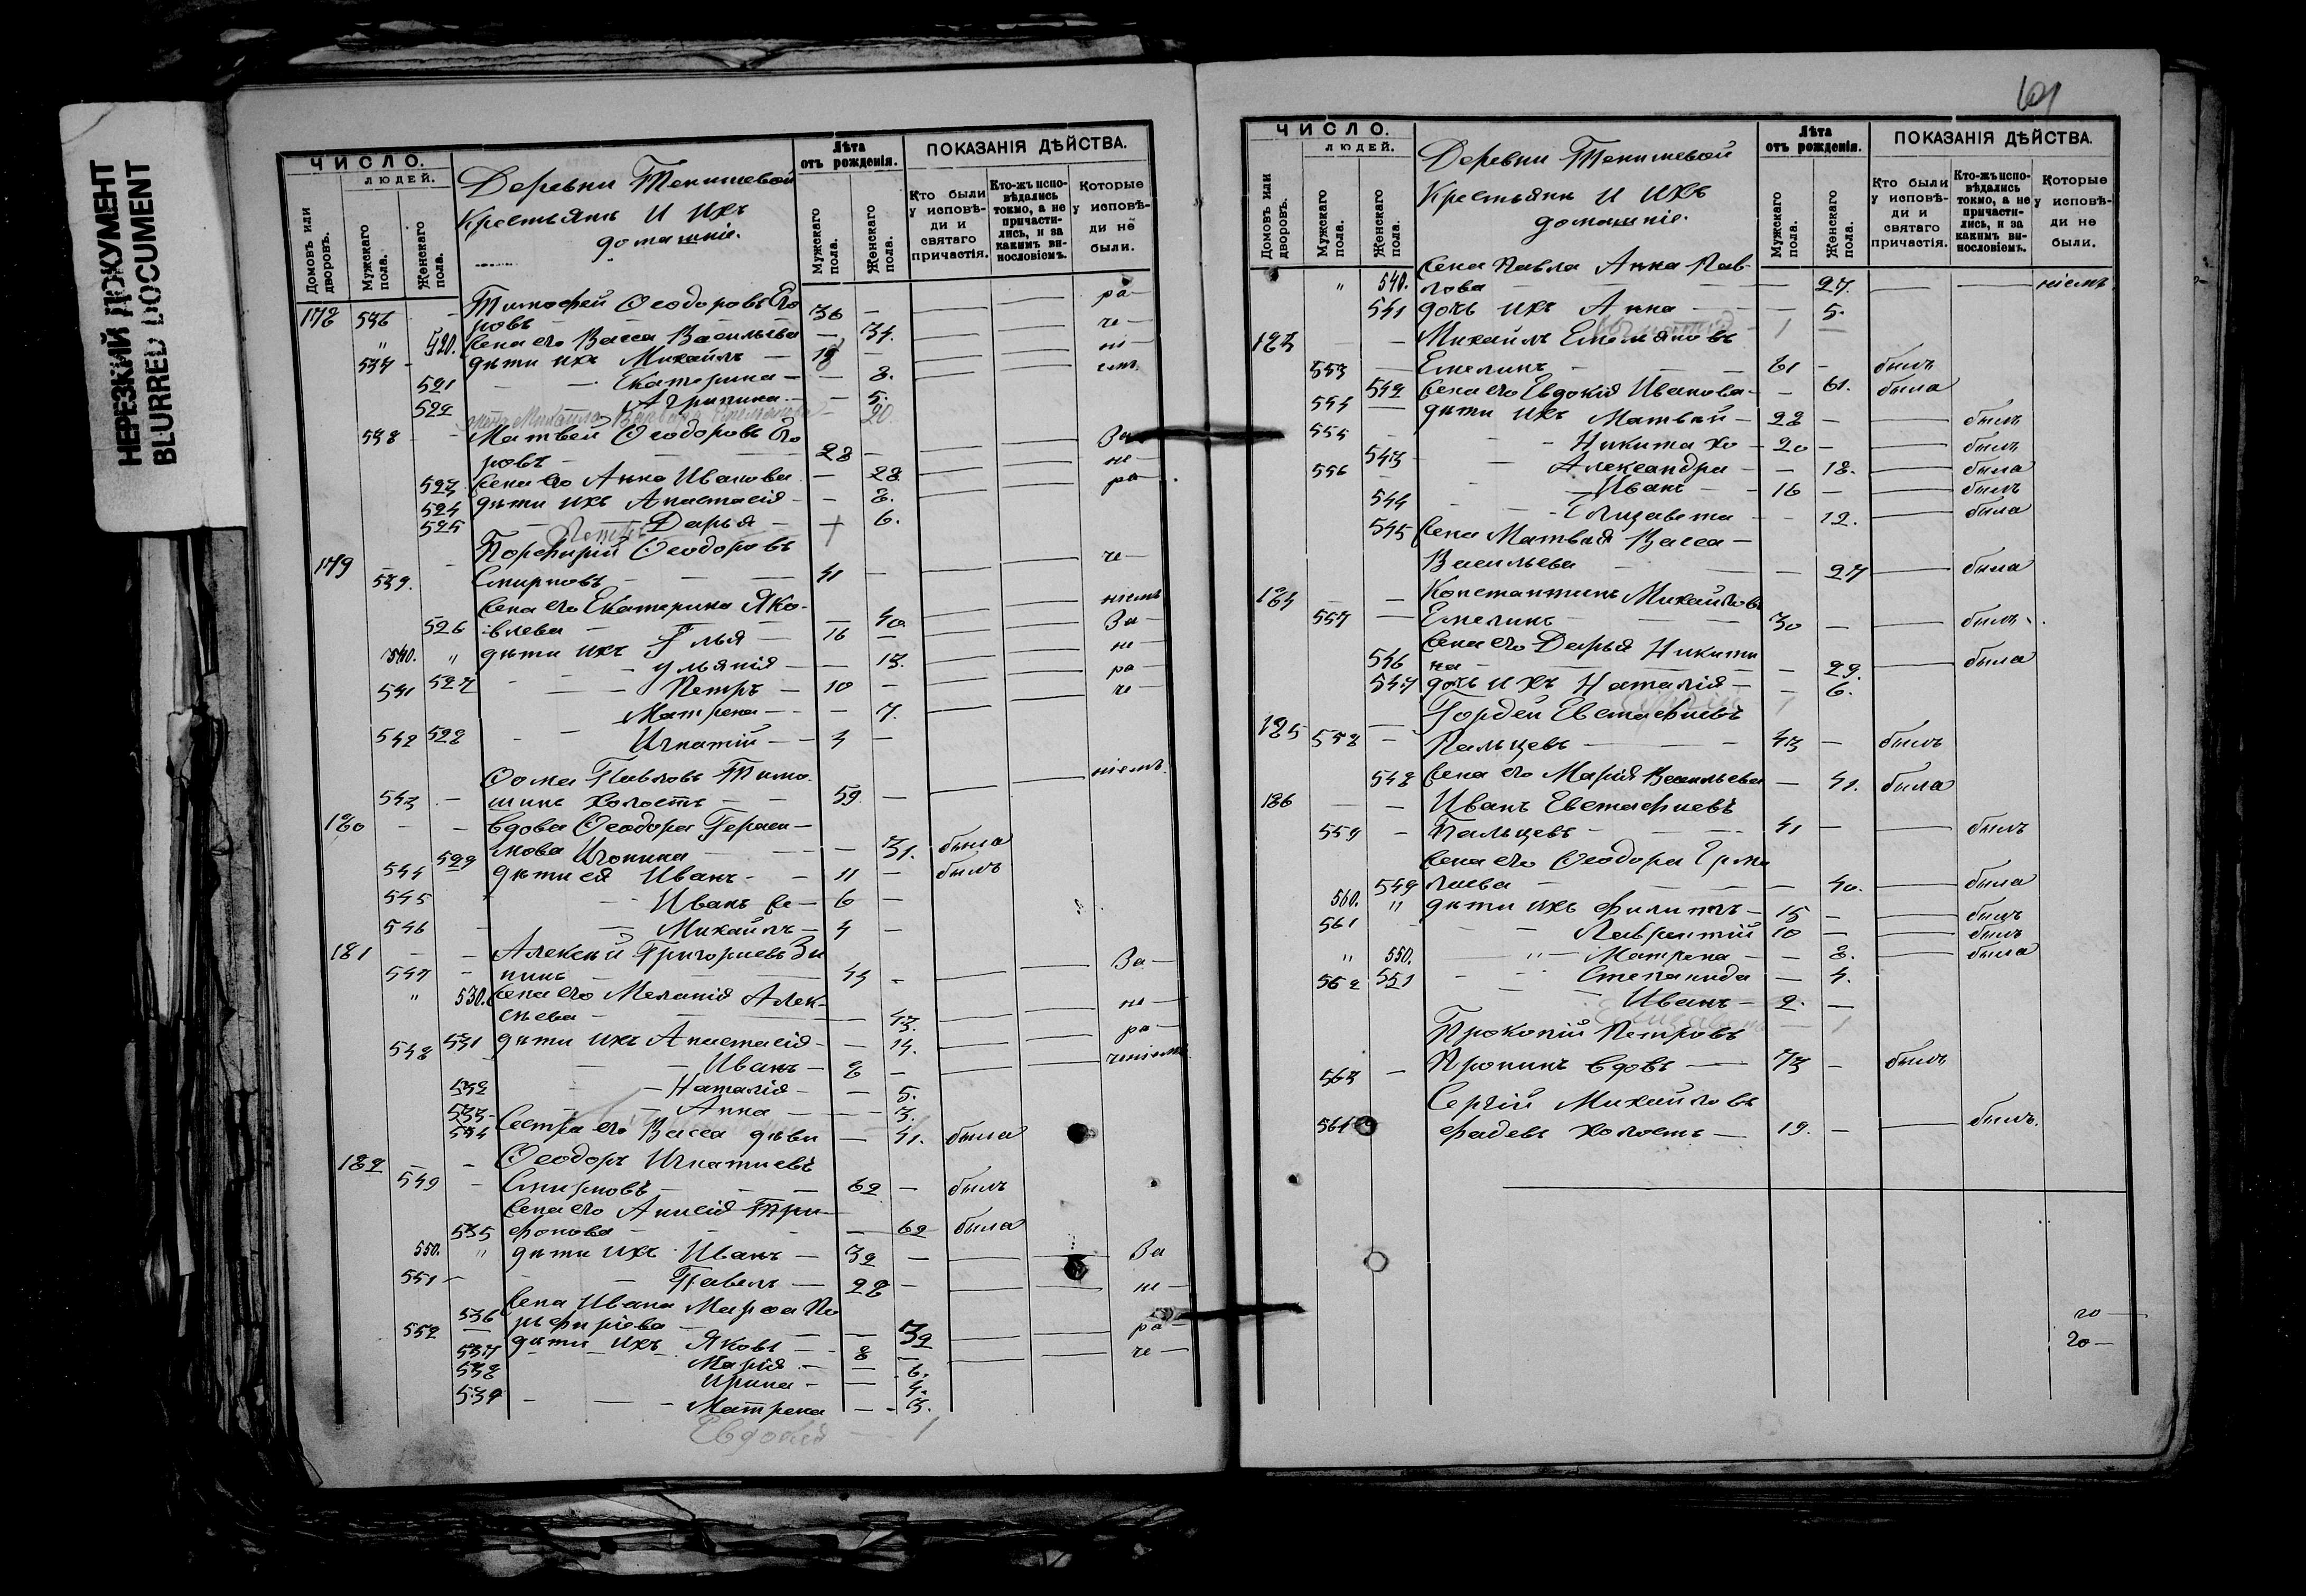 НЕРЕЗКИЙ ДОКУМЕНТ
BLURRED DOCUMENT
ЧИСЛО.
ЛЮДЕЙ.
Домовъ или дворовъ.
Мужскаго пола.
Женскаго пола.
Деревни Тенишевой
Крестьянъ и ихъ
домашніе.
Лѣта
отъ рожденія.
Мужскаго пола.
Женскаго пола.
ПОКАЗАНІЯ ДѢЙСТВА.
Кто были у исповѣди и святаго причастія.
Кто-жъ исповѣдались токмо, а не причастились, и за какимъ винословіемъ.
Которые у исповѣди не были.
178 536 - Тимофей Ѳеодоровъ Его
ровъ 36 - ра
" 520. Жена его Васса Васильева - 34. че
537 - дѣти ихъ Михаилъ - 18 - ні
521 - Екатерина - - 8. емъ
522 Агрипина - - 5.
20.
538 - Матвей Ѳеодоровъ Его
ровъ - 28 - За
523 Жена его Анна Иванова - 28. не
524 дѣти ихъ Анастасія - - 8. ра
525 - Дарья - 6.
Порфирій Ѳеодоровъ
179 539. Смирновъ - 41 - че
Жена его Екатерина Яко-
526 влева - 40 ніемъ
540. " дѣти ихъ Илья - 16 - За
527 - Ульянія - - 13. не
541 - Петръ - 10 - ра
Матрена - - 7. че
542 528 - Игнатій - 4 -
Ѳома Павловъ Тимо-
543 - шинъ холостъ - 59. - ніемъ
180 - - Вдова Ѳеодора Гераси-
529 мова Игонина - 31. была
544 дѣти ея Иванъ - 11 - былъ
545 - Иванъ - 6 -
546 - Михаилъ - 4 -
181 - - Алексѣй Григорьевъ Зи
547 - нинъ - 44 - За
" 530. Жена его Меланія Алек-
сѣева - 43. не
531 дѣти ихъ Анастасія - - 14. ра
548 - Иванъ - 8 - ченіемъ
532 - Наталія - - 5.
533 - Анна - - 3.
534 Сестра его Васса дѣви - 41. была
182 - - Ѳеодоръ Игнатіевъ
549 - Смирновъ - 62 - былъ
Жена его Анисія Три-
535 фонова - 62 была
550. " дѣти ихъ Иванъ - 32 - За
551 - Павелъ - 28 - не
Жена Ивана Марѳа По
536 рьфиріева - 32 ра
552 - дѣти ихъ Яковъ - 8 - че
537 - Марія - - 6.
538 Ирина - - 4.
539 - Матрена - - 3.
Евдокія - 1
ЧИСЛО.
ЛЮДЕЙ.
Домовъ или дворовъ.
Мужскаго пола.
Женскаго пола.
Деревни Тенишевой
Крестьянъ и ихъ
домашніе.
Лѣта
отъ рожденія.
Мужскаго пола.
Женскаго пола.
ПОКАЗАНІЯ ДѢЙСТВА.
Кто были у исповѣди и святаго причастія.
Кто-жъ исповѣдались токмо, а не причастились, и за какимъ винословіемъ.
Которые у исповѣди не были.
Жена Павла Анна Пав-
" 540. лова - 27. ніемъ
541 дочь ихъ Анна - 5.
183 - - Михаилъ Емельяновъ
553 - Емелинъ - 61 - былъ
542 Жена его Евдокія Иванова - - 61. была
554 - дѣти ихъ Матвѣй - 28 - былъ
555 - Никита хо - 20 - былъ
543 - Александра - - 18. была
556 - Иванъ - 16 - былъ
544 - Елизавета - - 12. была
545 Жена Матвѣя Васса -
Васильева - 27 была
184 - - Константинъ Михайловъ
557 - Емелинъ - 30 - былъ
Жена его Дарья Никити
546 на - 29. была
547 дочь ихъ Наталія - - 6.
Гордей Евстафіевъ
185 558 - Пальцевъ - 43 - былъ
548 Жена его Марія Васильева - 41. была
186 - - Иванъ Евстафіевъ
559 - Пальцевъ - 41 - былъ
Жена его Ѳеодора Ермо
549 лаева - 40. была
560. " дѣти ихъ Филиппъ - 15 - былъ
561 - Лаврентій 10 - былъ
" 550. " Матрена - - 8. была
551 - Степанида - 4.
562 - Иванъ - 2. -
Прокопій Петровъ
563 - Пронинъ вдовъ - 73 - былъ
Сергій Михайловъ
564 Фадевъ холостъ - 19. - былъ.